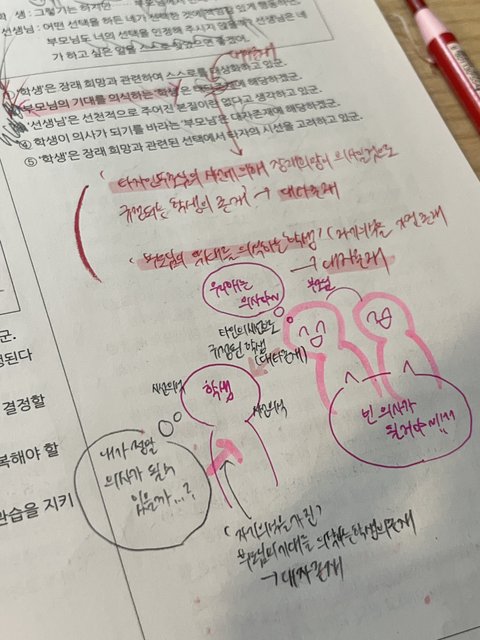 학 생 : 그렇기는 하지만
선생님 : 어떤 선택을 하든 네가 선택한 것에 책임감 있게 행동하면
부모님도 너의 선택을 인정해 주시지 않을까? 선생님은 네
가 하고 싶은 일을 스스로 찾았으면 좋겠어.
'학생'은 장래 희망과 관련하여 스스로를 대상화하고 있군.
부모님의 기대를 의식하는 '학생'은 에 해당하겠군.
'선생님'은 선천적으로 주어진 본질이란 없다고 생각하고 있군.
④ 학생이 의사가 되기를 바라는 '부모님'은 대자존재에 해당하겠군.
⑤ '학생'은 장래 희망과 관련된 선택에서 타자의 시선을 고려하고 있군.
타자인 부모님의 시선에 의해 장래희망이 의사일 것으로
규정되는 학생의 존재 → 대타존재
부모님의 기대를 의식하는 학생
→ 대자존재
부모님
우리애는
의사라니
타인의 시선으로
규정된 학생
(대타존재)
학생
시선의식
시선의식
넌 의사가
될거야~!!
내가 정말
의사가 될 수
있을까...?
자기의식을 가진
부모님의 기대를 의식하는 학생의 존재
→ 대자존재
군.
정된다
결정할
복해야 할
관습을 지키